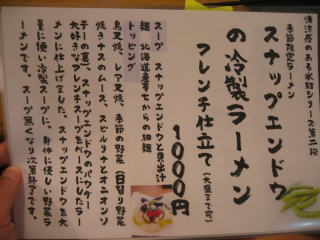 清涼感のある氷結シリーズ第二段
季節限定ラーメン
スナップエンドウ
の冷製ラーメン
フレンチ仕立て(大盛まで可)
1000円
スープ スナップエンドウと貝出汁
麺 北海道産夢ちからの細麺
トッピング
鳥叉焼、レア叉焼、季節の野菜(日替り野菜
焼きナスのムース、スピルリナとオニオンソ
テーの裏)スナップエンドウのパウダー
大好きなフレンチスープをベースにしたラー
メンに仕上げました。スナップエンドウを大
量に使い冷製スープに。身体に優しい野菜ラ
ーメンです。スープ無くなり次第終了です。